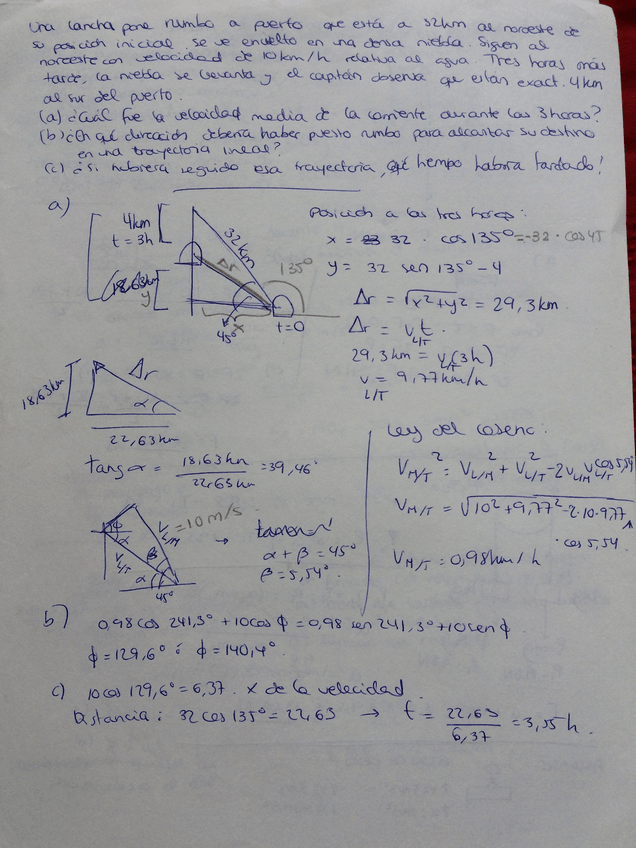 Una lancha pone rumbo a puerto que está a 32km al noroeste de
su posición inicial. Se ve envuelto en una densa niebla. Siguen al
noroeste con velocidad de 10 km/h relativa al agua. Tres horas más
tarde, la niebla se levanta y el capitán observa que están exact. 4km
al sur del puerto.
(a) ¿Cuál fue la velocidad media de la corriente durante las 3 horas?
(b) ¿En qué dirección debería haber puesto rumbo para alcanzar su destino
en una trayectoria lineal?
(c) ¿Si hubiera seguido esa trayectoria, qué tiempo habría tardado?
a)
4km
t = 3h
(18,63km
y
32km
Δr
135°
x
45°
t=0
Posición a las tres horas:
x = 32 · cos 135° = -32 · cos 45
y = 32 sen 135° - 4
Δr = √x²+y² = 29,3 km.
Δr = v t.
L/T
29,3km = v (3h)
L/T
v = 9,77 km/h
L/T
18,63km
Δr
α
22,63km
tang α = 18,63km / 22,63km = 39,46°
φ
α
V L/M = 10 m/s.
V L/T
β
α
45°
→
α + β = 45°
β = 5,54°.
Ley del coseno:
V M/T ² = V L/M ² + V L/T ² - 2 V L/M V L/T cos 5,54
V M/T = √10² + 9,77² - 2·10·9,77
· cos 5,54.
V M/T = 0,98 km/h
b) 0,98 cos 241,3° + 10 cos φ = 0,98 sen 241,3° + 10 sen φ
φ = 129,6° ó φ = 140,4°.
c) 10 cos 129,6° = 6,37. x de la velocidad
Distancia: 32 cos 135° = 22,63 → t = 22,63 / 6,37 = 3,55 h.